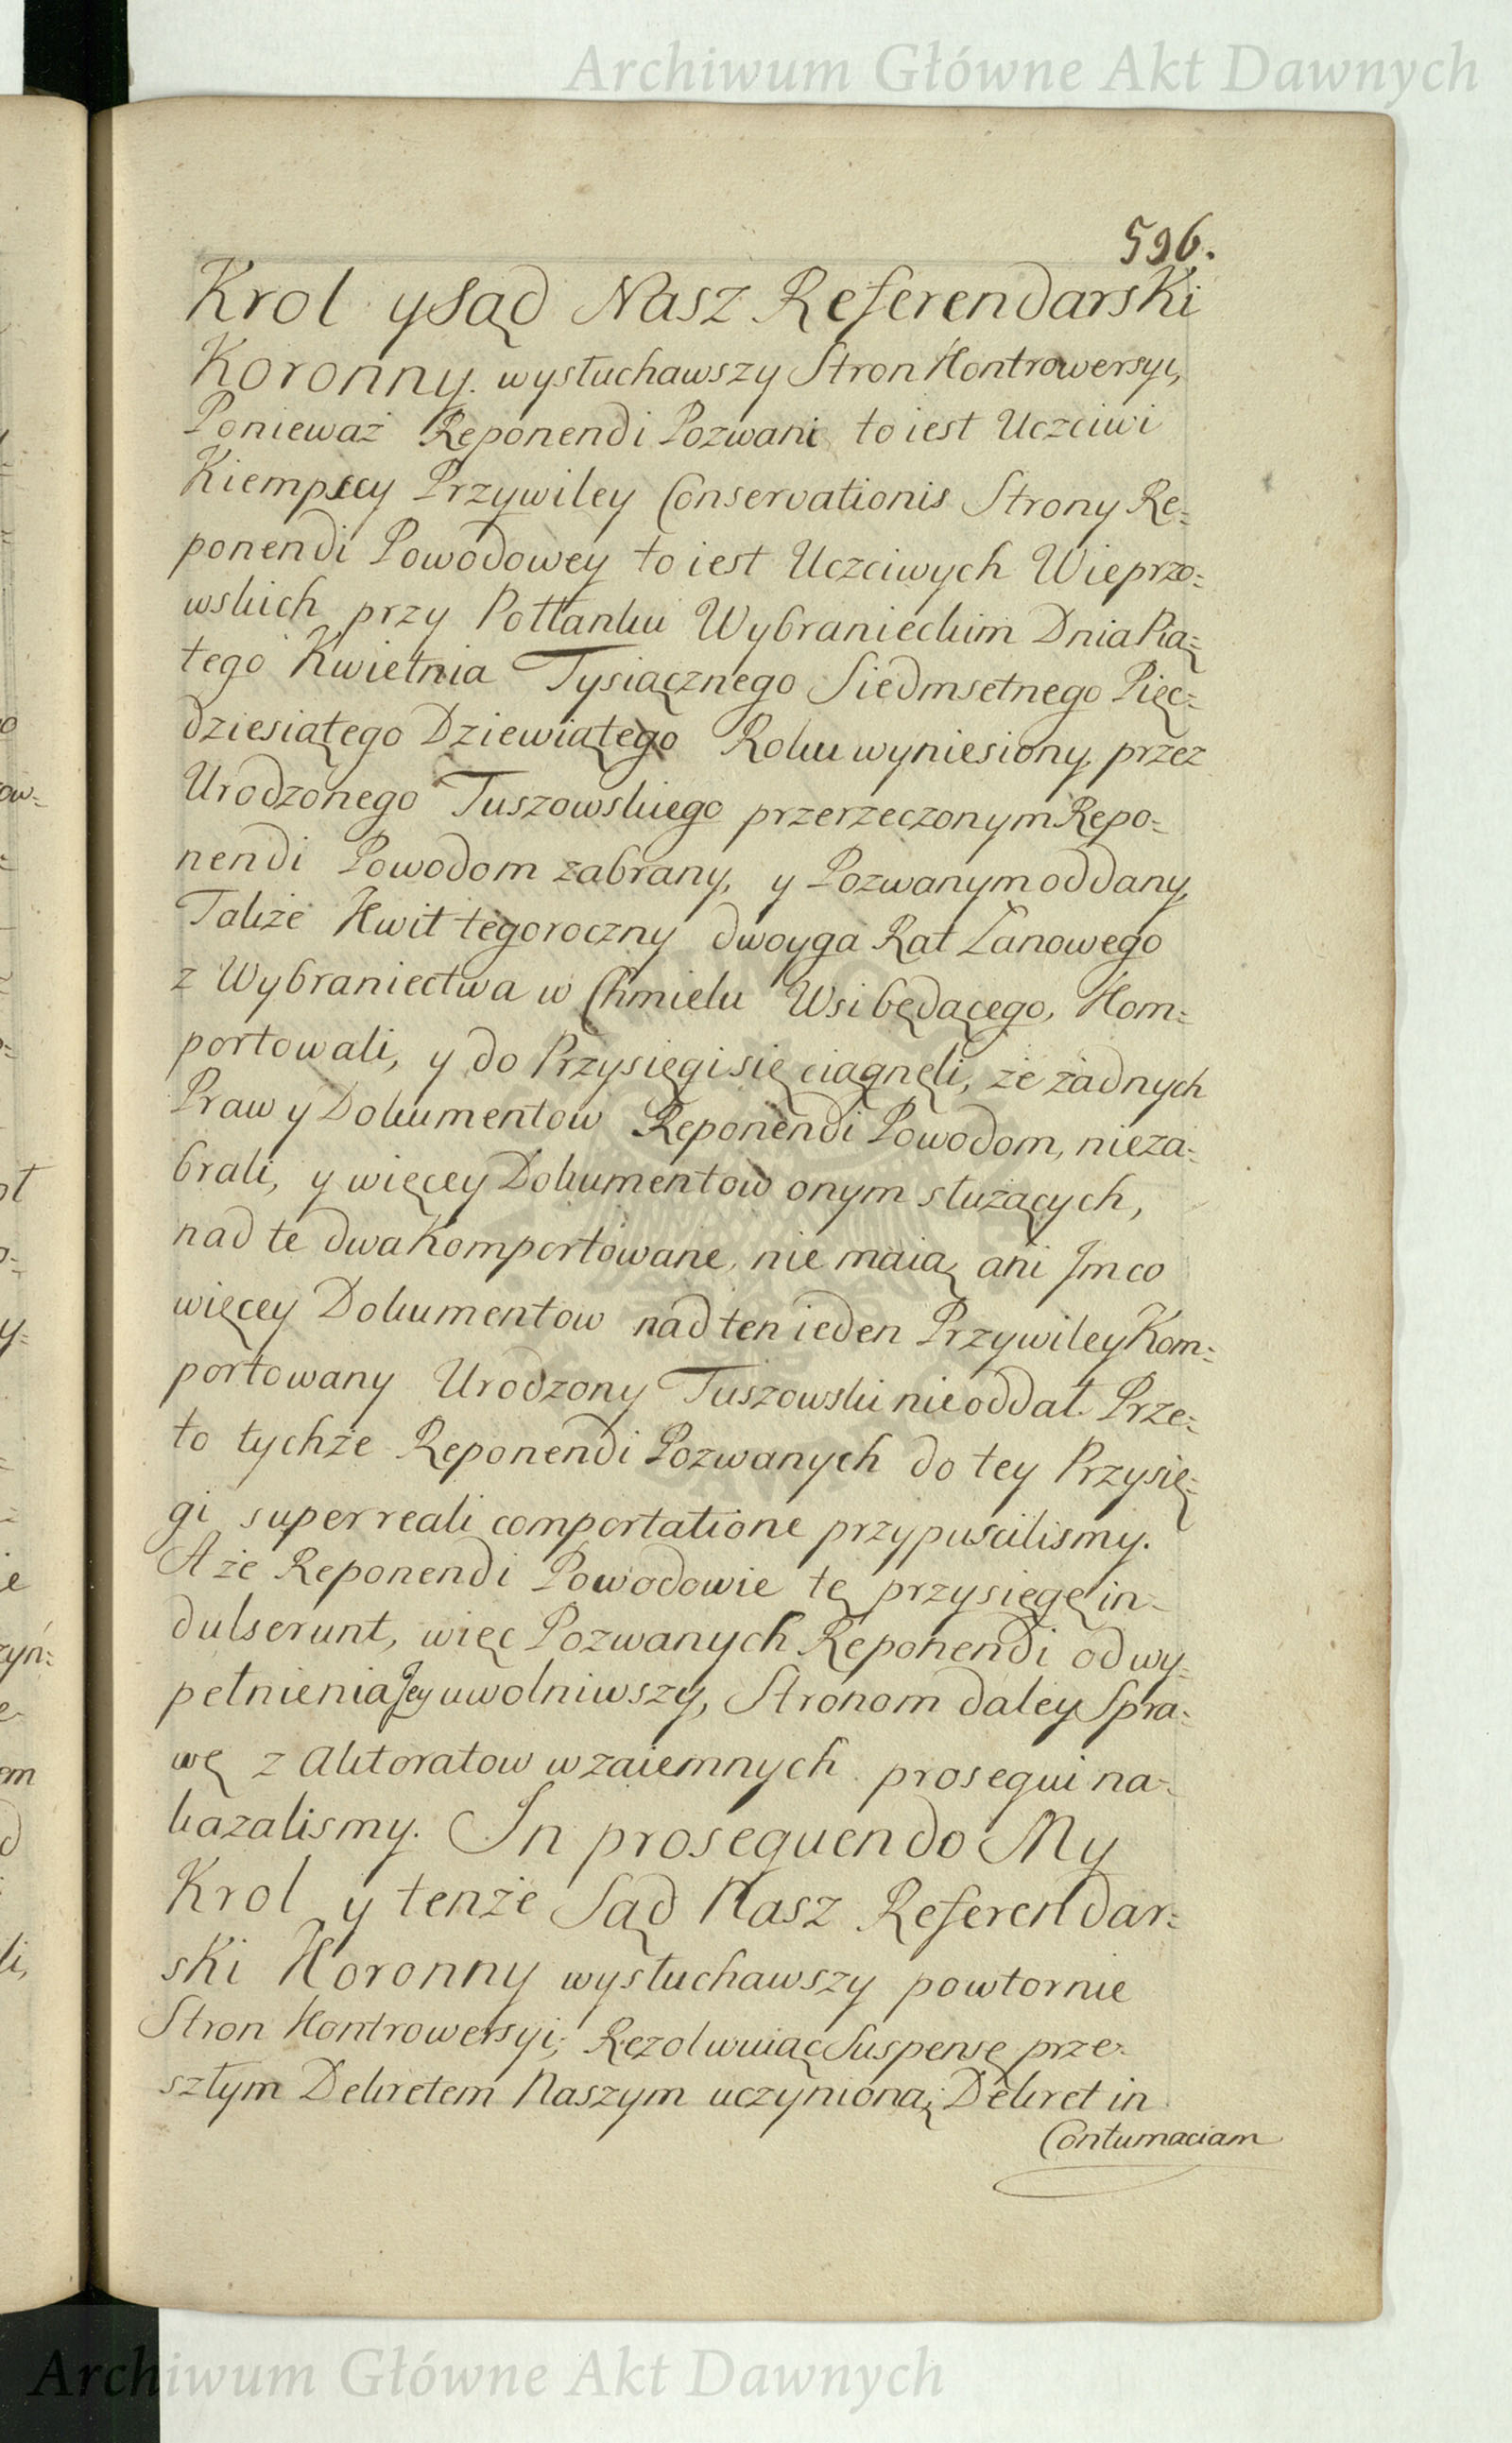 Archiwum Główne Akt Dawnych
596.
Krol y Sąd Nasz Referendarski
Koronny. wysłuchawszy Stron Kontrowersyi,
Ponieważ Reponendi Pozwani to iest Uczciwi
Kiempscy Przywiley Conservationis Strony Re=
ponendi Powodowey to iest Uczciwych Wieprzo=
wskich przy Połłanku Wybranieckim Dnia Pią=
tego Kwietnia Tysiącznego Siedmsetnego Pięć=
dziesiątego Dziewiątego Roku wyniesiony, przez
Urodzonego Tuszowskiego przerzeczonym Repo=
nendi Powodom zabrany, y Pozwanym oddany,
Także Kwit tegoroczny dwoyga Rat Łanowego
z Wybraniectwa w Chmielu Wsi będącego, Kom=
portowali, y do Przysięgi się ciągnęli, że żadnych
Praw y Dokumentow Reponendi Powodom, nieza=
brali, y więcey Dokumentow onym służących,
nad te dwa Komportowane, nie maią, ani Jm co
więcey Dokumentow nad ten ieden Przywiley Kom=
portowany Urodzony Tuszowski nie oddał. Prze=
to tychże Reponendi Pozwanych do tey Przysię=
gi super reali comportatione przypuscilismy.
A że Reponendi Powodowie tę przysięgę in=
dulserunt, więc Pozwanych Reponendi od wy=
pełnienia Jey uwolniwszy, Stronom daley Spra=
wę z Aktoratow wzaiemnych prosequi na=
kazalismy. In prosequendo My
Krol y tenże Sąd Nasz Referendar=
ski Koronny wysłuchawszy powtornie
Stron Kontrowersyi; Rezolwuiąc Suspensę prze=
szłym Dekretem Naszym uczynioną; Dekret in
Contumaciam
Archiwum Główne Akt Dawnych